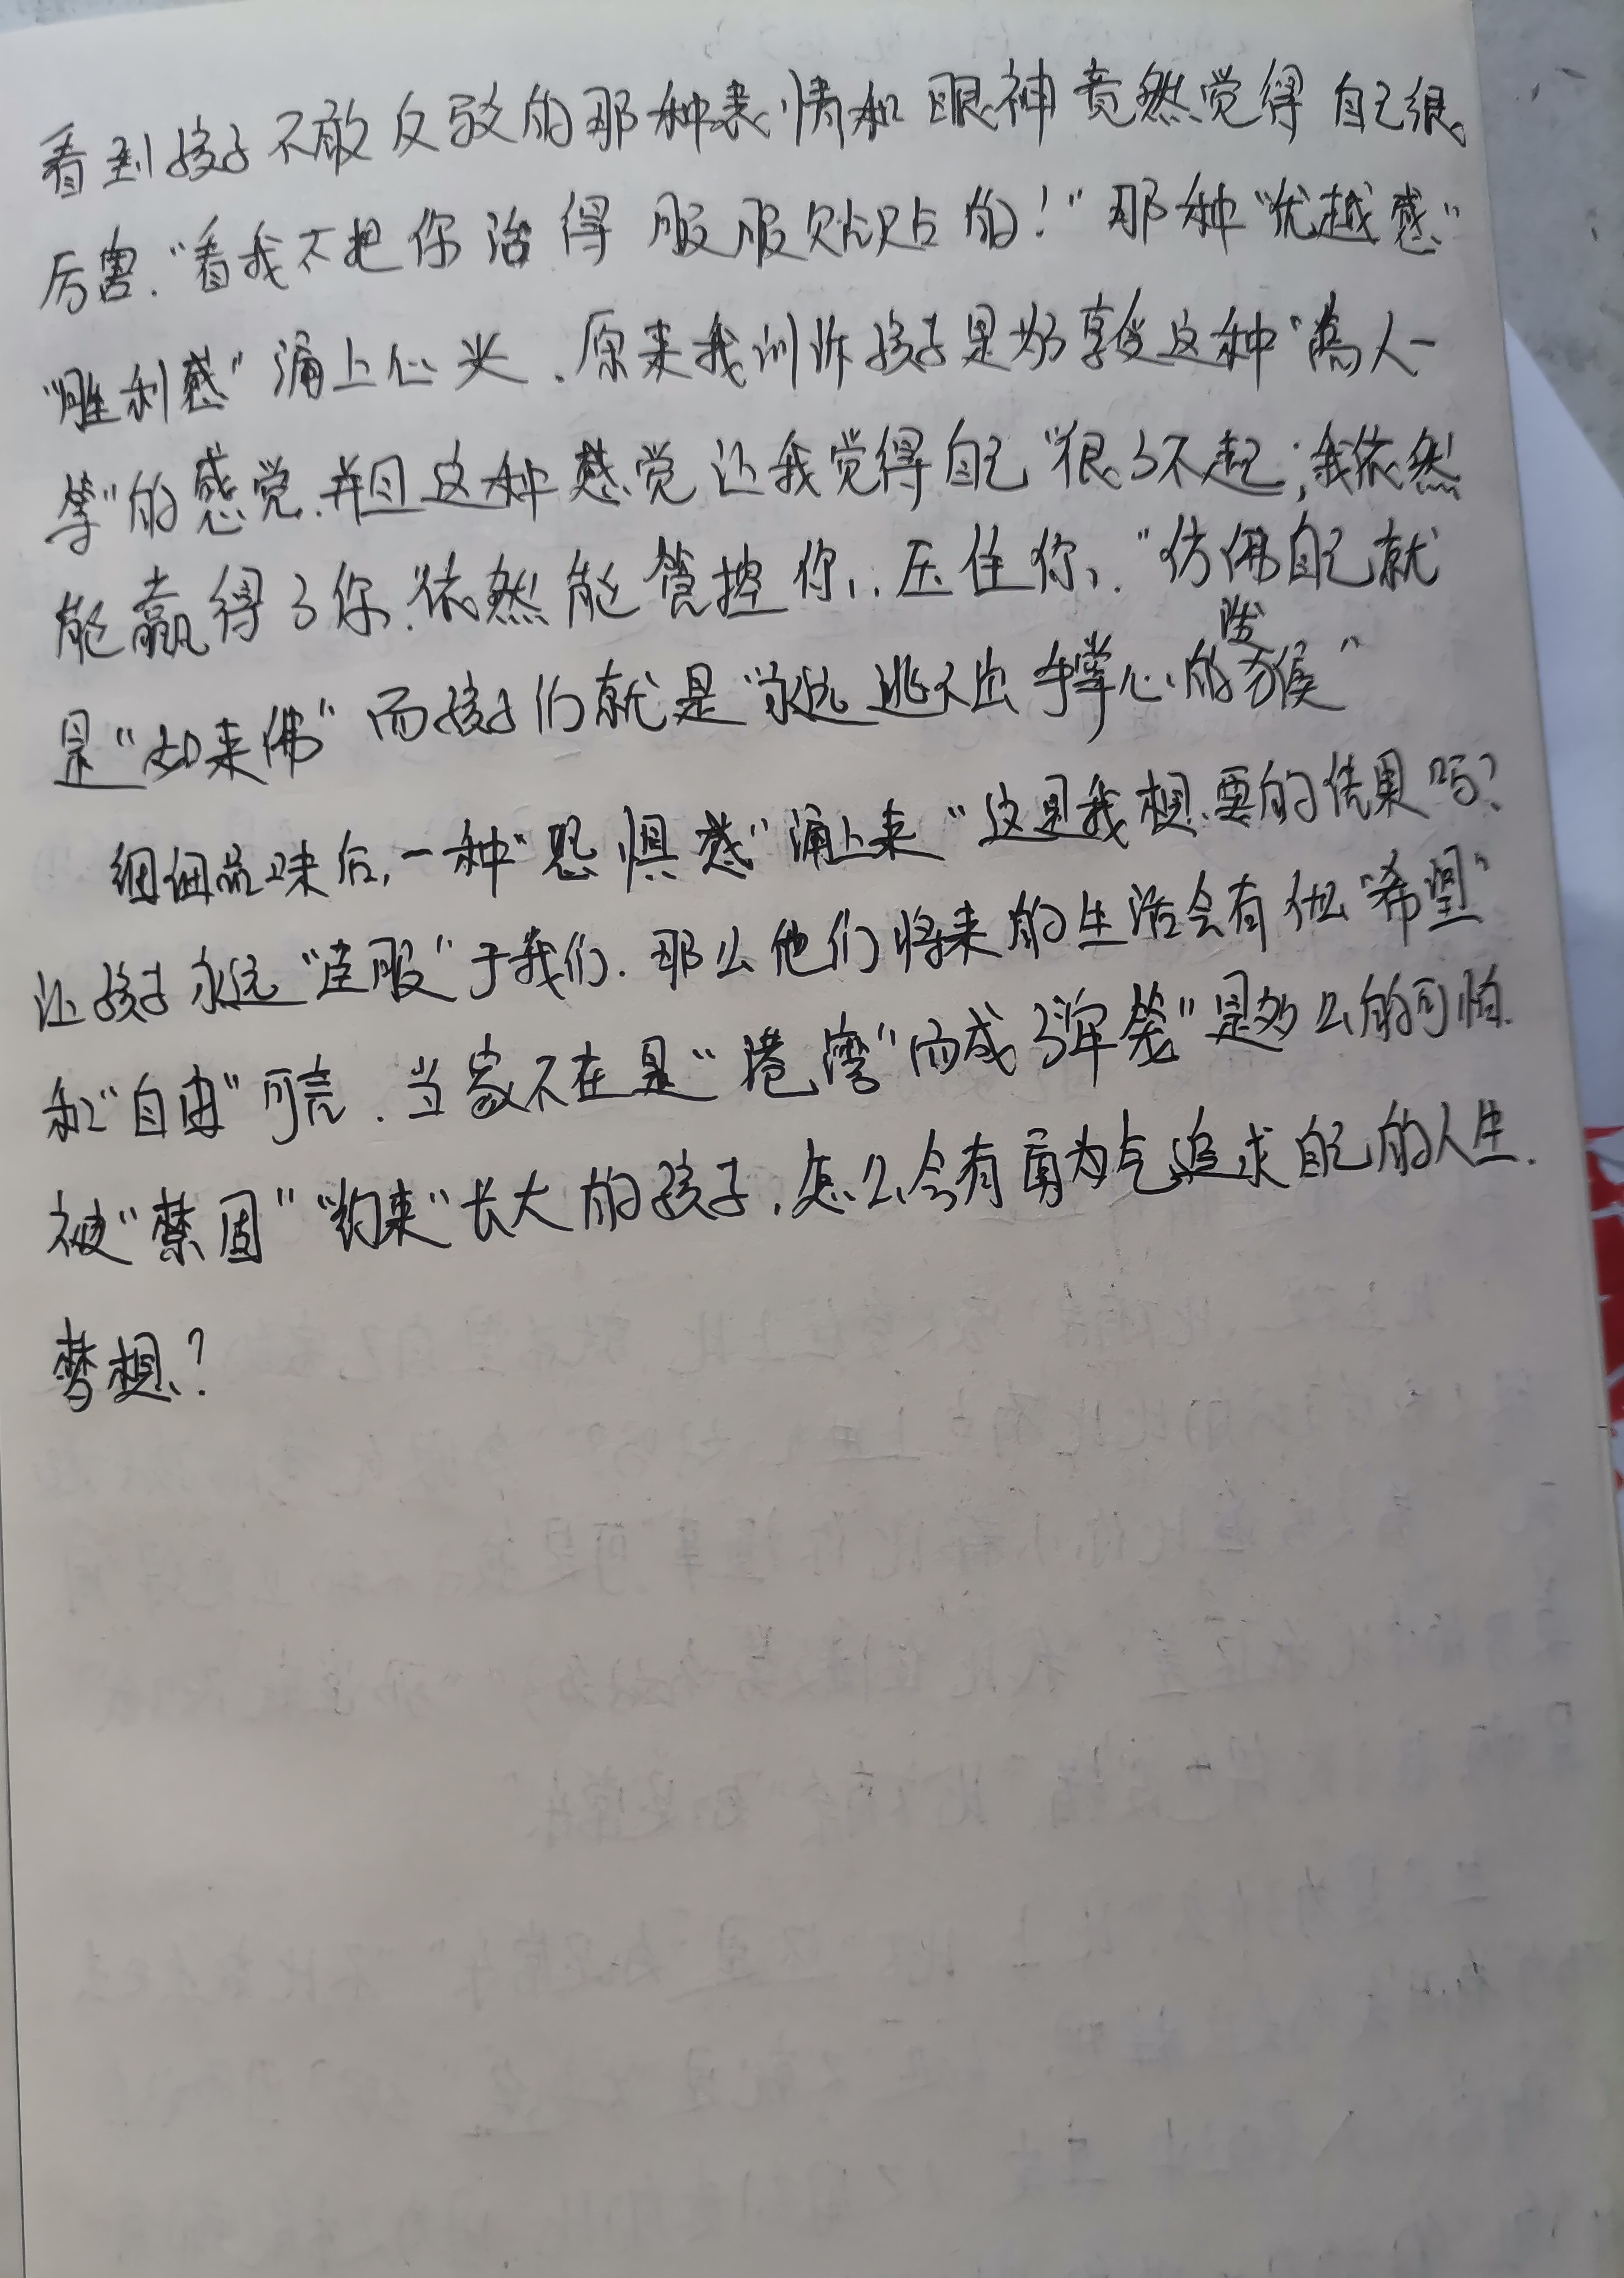 看到孩子不敢反驳的那种表情和眼神竟然觉得自己很
厉害."看我不把你治得服服贴贴的!"那种"优越感"
"胜利感"涌上心头.原来我训诉孩子是为了享受这种"高人一
等"的感觉.并且这种感觉让我觉得自己"很了不起;我依然
能赢得了你.依然能管控你,.压住你,."仿佛自己就
是"如来佛"而孩子们就是"永远逃不出手掌心的泼猴"
细细品味后,一种"恐惧感"涌上来"这是我想要的结果吗?
让孩子永远"臣服"于我们.那么他们将来的生活会有什么"希望"
和"自由"可言.当家不在是"港湾"而成了"牢笼"是多么的可怕.
被"禁固""约束"长大的孩子,怎么会有勇气追求自己的人生.
梦想?